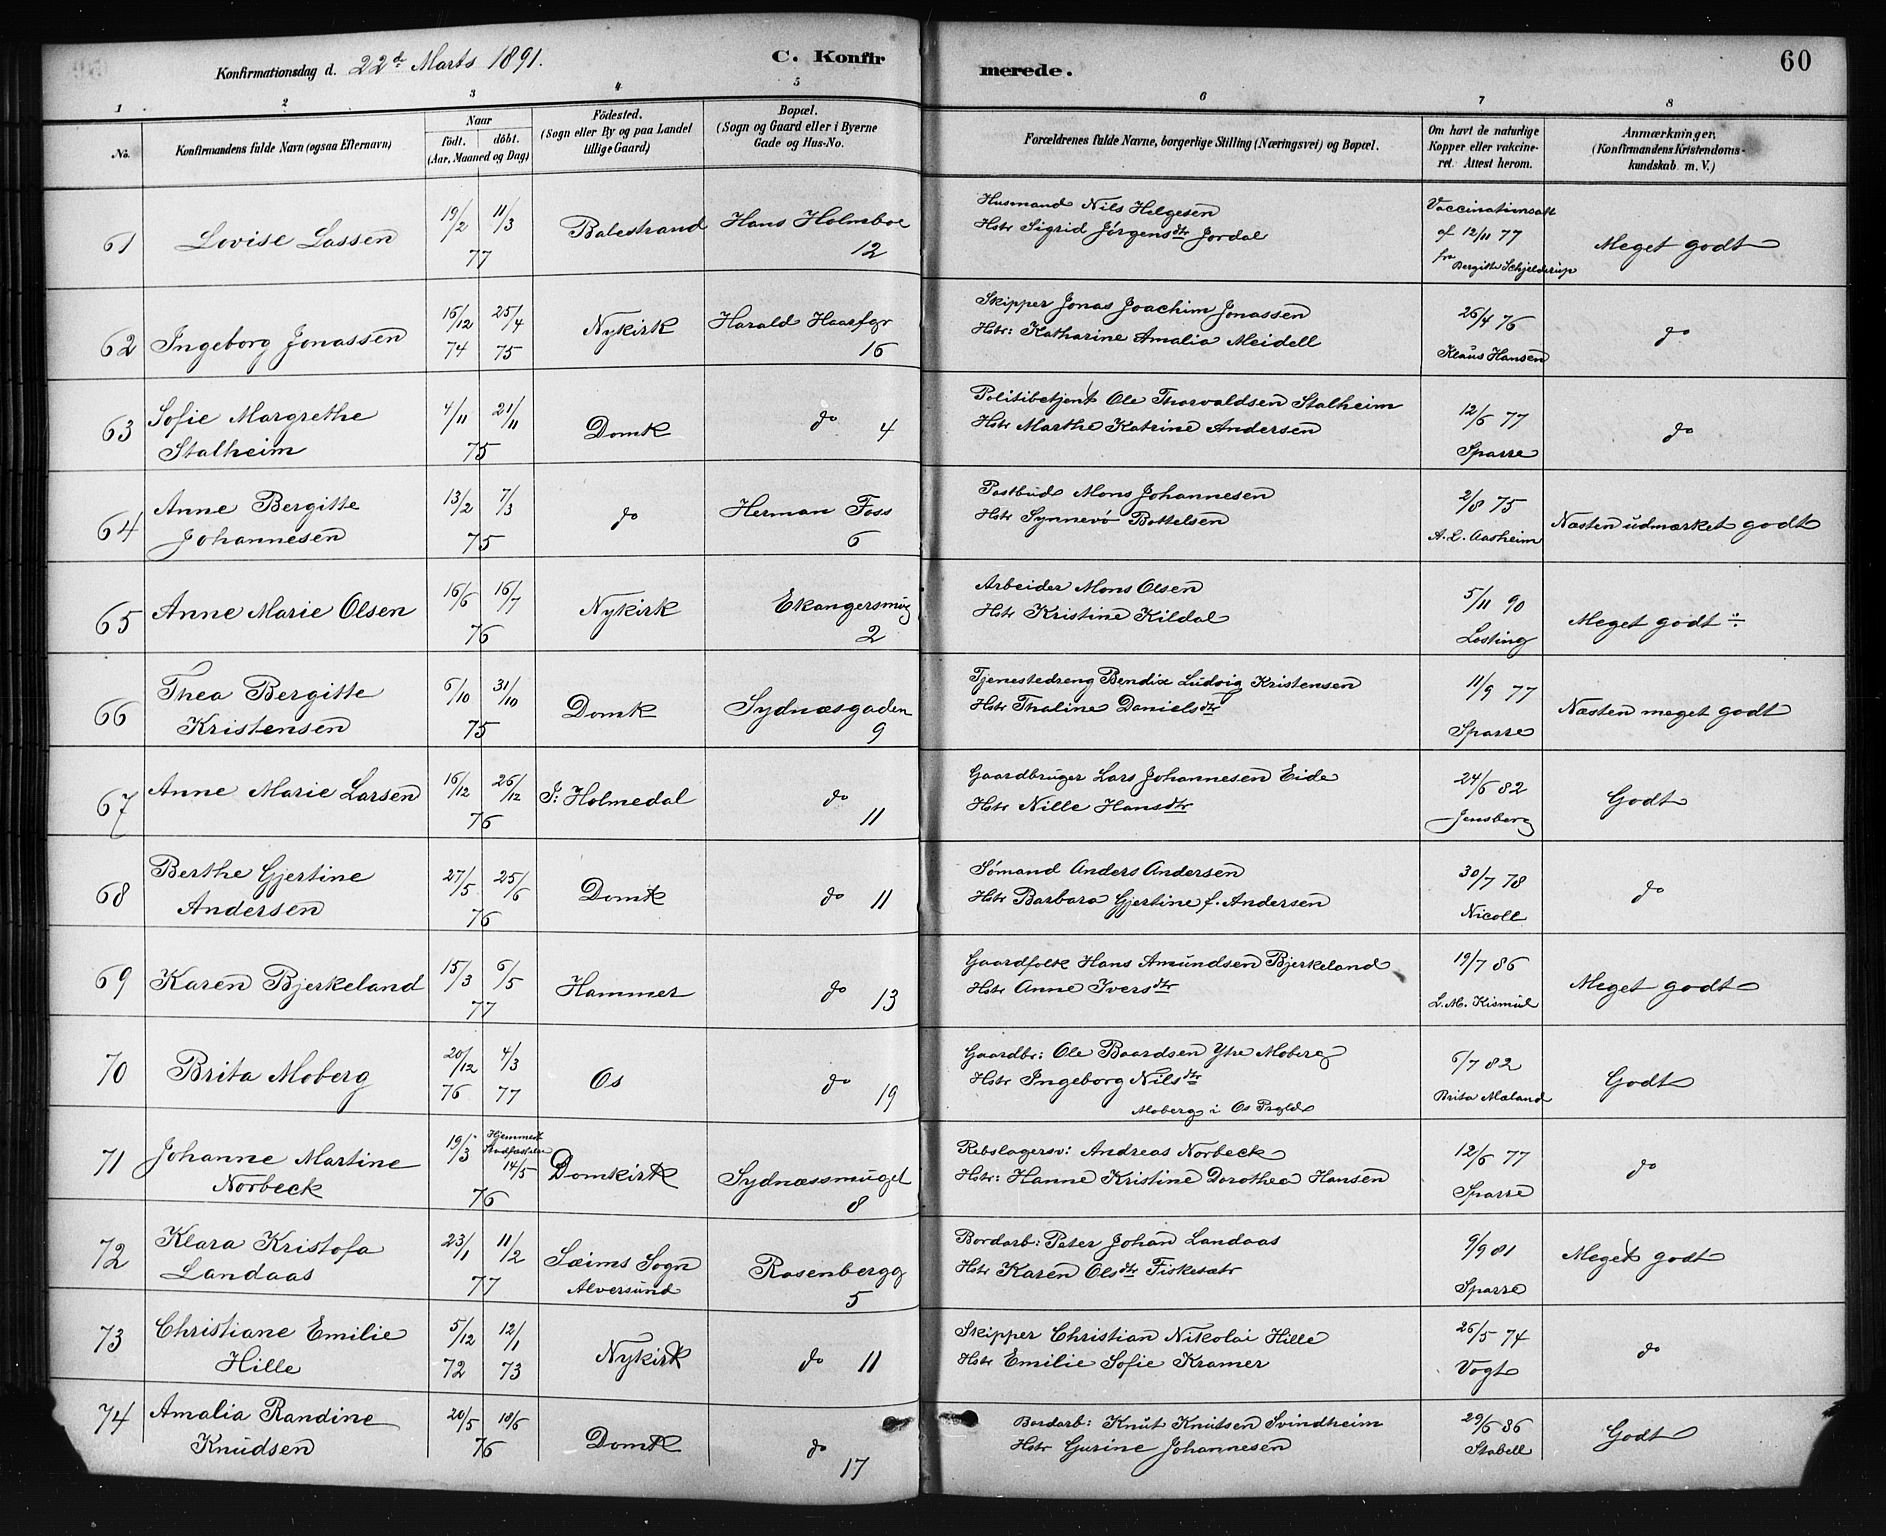 Konfirmationsdag d. 22de Marts 1891.
C. Konfirmerede.
60
1 2 3 4 5 6 7 8
No.
Konfirmandens fulde Navn (ogsaa Efternavn)
Naar
födt. döbt.
(Aar, Maaned og Dag)
Födested.
(Sogn eller By og paa Landet
tillige Gaard)
Bopæl.
(Sogn og Gaard eller i Byerne
Gade og Hus-No.
Forældrenes fulde Navne, borgerlige Stilling (Næringsvei) og Bopæl.
Om havt de naturlige
Kopper eller vakcine-
ret. Attest herom.
Anmærkninger.
(Konfirmandens Kristendoms-
kundskab m. V.)
61 Lovise Lassen
19/2 11/3
77
Balestrand
Hans Holmboe
12
Husmand Nils Helgesen
Hstr Sigrid Jørgensdtr Jordal
Vaccinationsatt
af 12/11 77
fra Bergitte Schjelderup
Meget godt
62 Ingeborg Jonassen
16/12 25/4
74 75
Nykirk
Harald Haarfgr
16
Skipper Jonas Joachim Jonassen
Hstr: Katharine Amalia Meidell
26/4 76
Klaus Hansen
do
63 Sofie Margrethe
Stalheim
4/11 21/11
75
Domk
do 4
Politibetjent Ole Thorvaldsen Stalheim
Hstr Marthe Katrine Andersen
12/6 77
Sparre
do
64 Anne Bergitte
Johannesen
13/2 7/3
75
do
Herman Foss
6
Postbud Mons Johannesen
Hstr Synnevø Bottelsen
2/8 75
A. L. Aasheim
Næsten udmærket godt
65 Anne Marie Olsen
16/6 16/7
76
Nykirk
Ekangersmug
2
Arbeider Mons Olsen
Hstr Kristine Kildal
5/11 90
Losting
Meget godt ÷
66 Thea Bergitte
Kristensen
6/10 31/10
75
Domk
Sydnæsgaden
9
Tjenestedreng Bendix Ludvig Kristensen
Hstr Thaline Danielsdtr
11/9 77
Sparre
Næsten meget godt
67 Anne Marie Larsen
16/12 26/12
76
I: Holmedal
do
11
Gaardbruger Lars Johannesen Eide
Hstr Nille Hansdtr
24/6 82
Jensberg
Godt
68 Berthe Gjertine
Andersen
27/5 25/6
76
Domk
do 11
Sømand Anders Andersen
Hstr Barbara Gjertine f. Andersen
30/7 78
Nicoll
do
69 Karen Bjerkeland
15/3 6/5
77
Hammer
do 13
Gaardfolk Hans Amundsen Bjerkeland
Hstr Anne Iversdtr
19/7 86
L. M. Kismul
Meget godt
70 Brita Moberg
20/12 4/3
76 77
Os
do 19
Gaardbr: Ole Baardsen Ytre Moberg
Hstr Ingeborg Nilsdtr
Moberg i Os Prgld
6/7 82
Brita Mæland
Godt
71 Johanne Martine
Norbeck
19/3 Hjemmedt
14/5
76
Domkirk
Sydnæssmuget
8
Rebslagersv: Andreas Norbeck
Hstr: Hanne Kristine Dorothea Hansen
12/6 77
Sparre
do
72 Klara Kristofa
Landaas
23/1 11/2
77
Sæims Sogn
Alversund
Rosenbergg
5
Bordarb: Peter Johan Landaas
Hstr Karen Olsdtr Fisketætr
9/9 81
Sparre
Meget godt
73 Christiane Emilie
Hille
5/12 12/1
72 73
Nykirk
do 11
Skipper Christian Nikolai Hille
Hstr Emilie Sofie Kramer
26/5 74
Vogt
do
74 Amalia Randine
Knudsen
20/5 18/6
76
Domk
do
17
Bordarb: Knut Knutsen Svindheim
Hstr Gurine Johannesen
29/6 86
Stabell
Godt